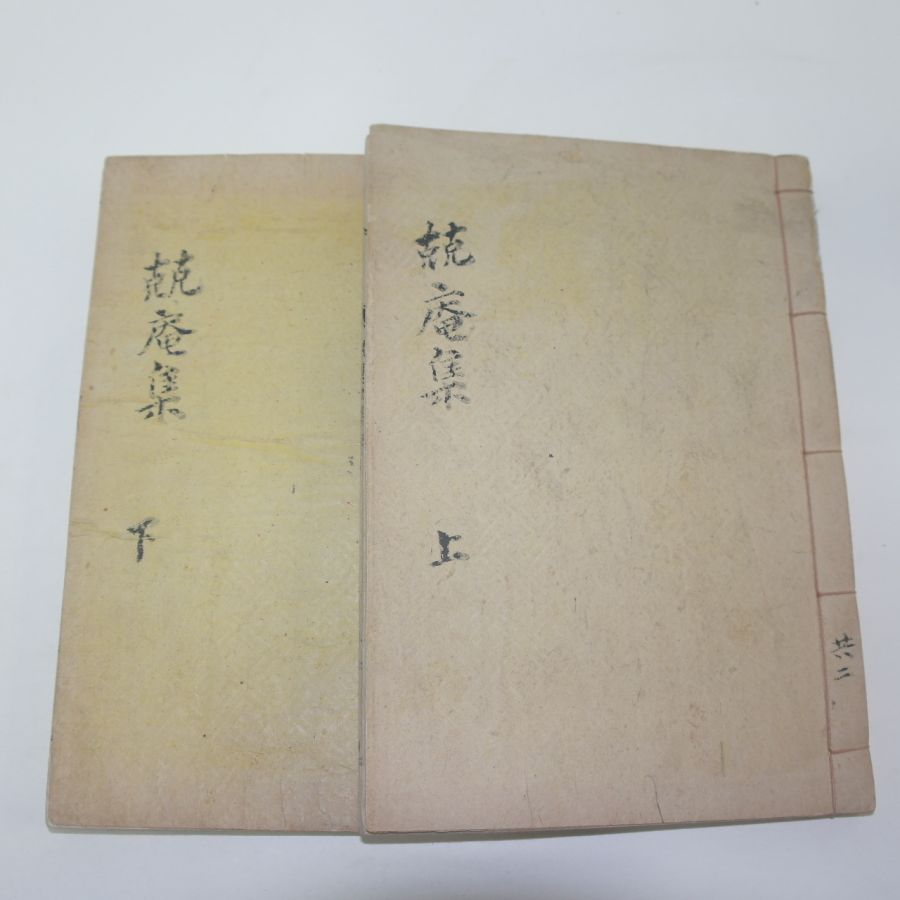 兢庵集 上
共二
兢庵集 下